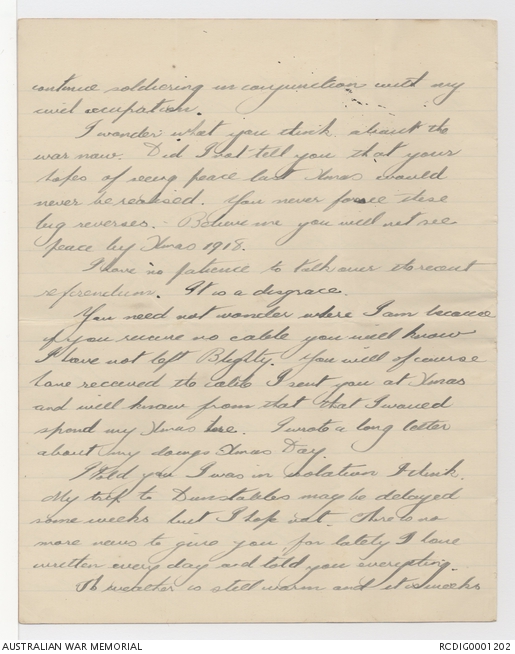 continue soldiering in conjunction with my
civil occupation.
I wonder what you think about the
war now. Did I not tell you that your
hopes of seeing peace last Xmas would
never be realised. You never forsee these
big reverses. - Believe me you will not see
peace by Xmas 1918.
I have no patience to talk over the recent
referendum. It is a disgrace.
You need not wonder where I am because
if you receive no cable you will know
I have not left Blighty. You will of course
have received the cable I sent you at Xmas
and will know from that that I would
spend my Xmas here. I wrote a long letter
about my doings Xmas Day.
I told you I was in isolation I think.
My trip to Dunstables may be delayed
some weeks but I hope not. There is no
more news to give you for lately I have
written every day and told you everything.
The weather is still warm and it is weeks
AUSTRALIAN WAR MEMORIAL
RCDIG0001202